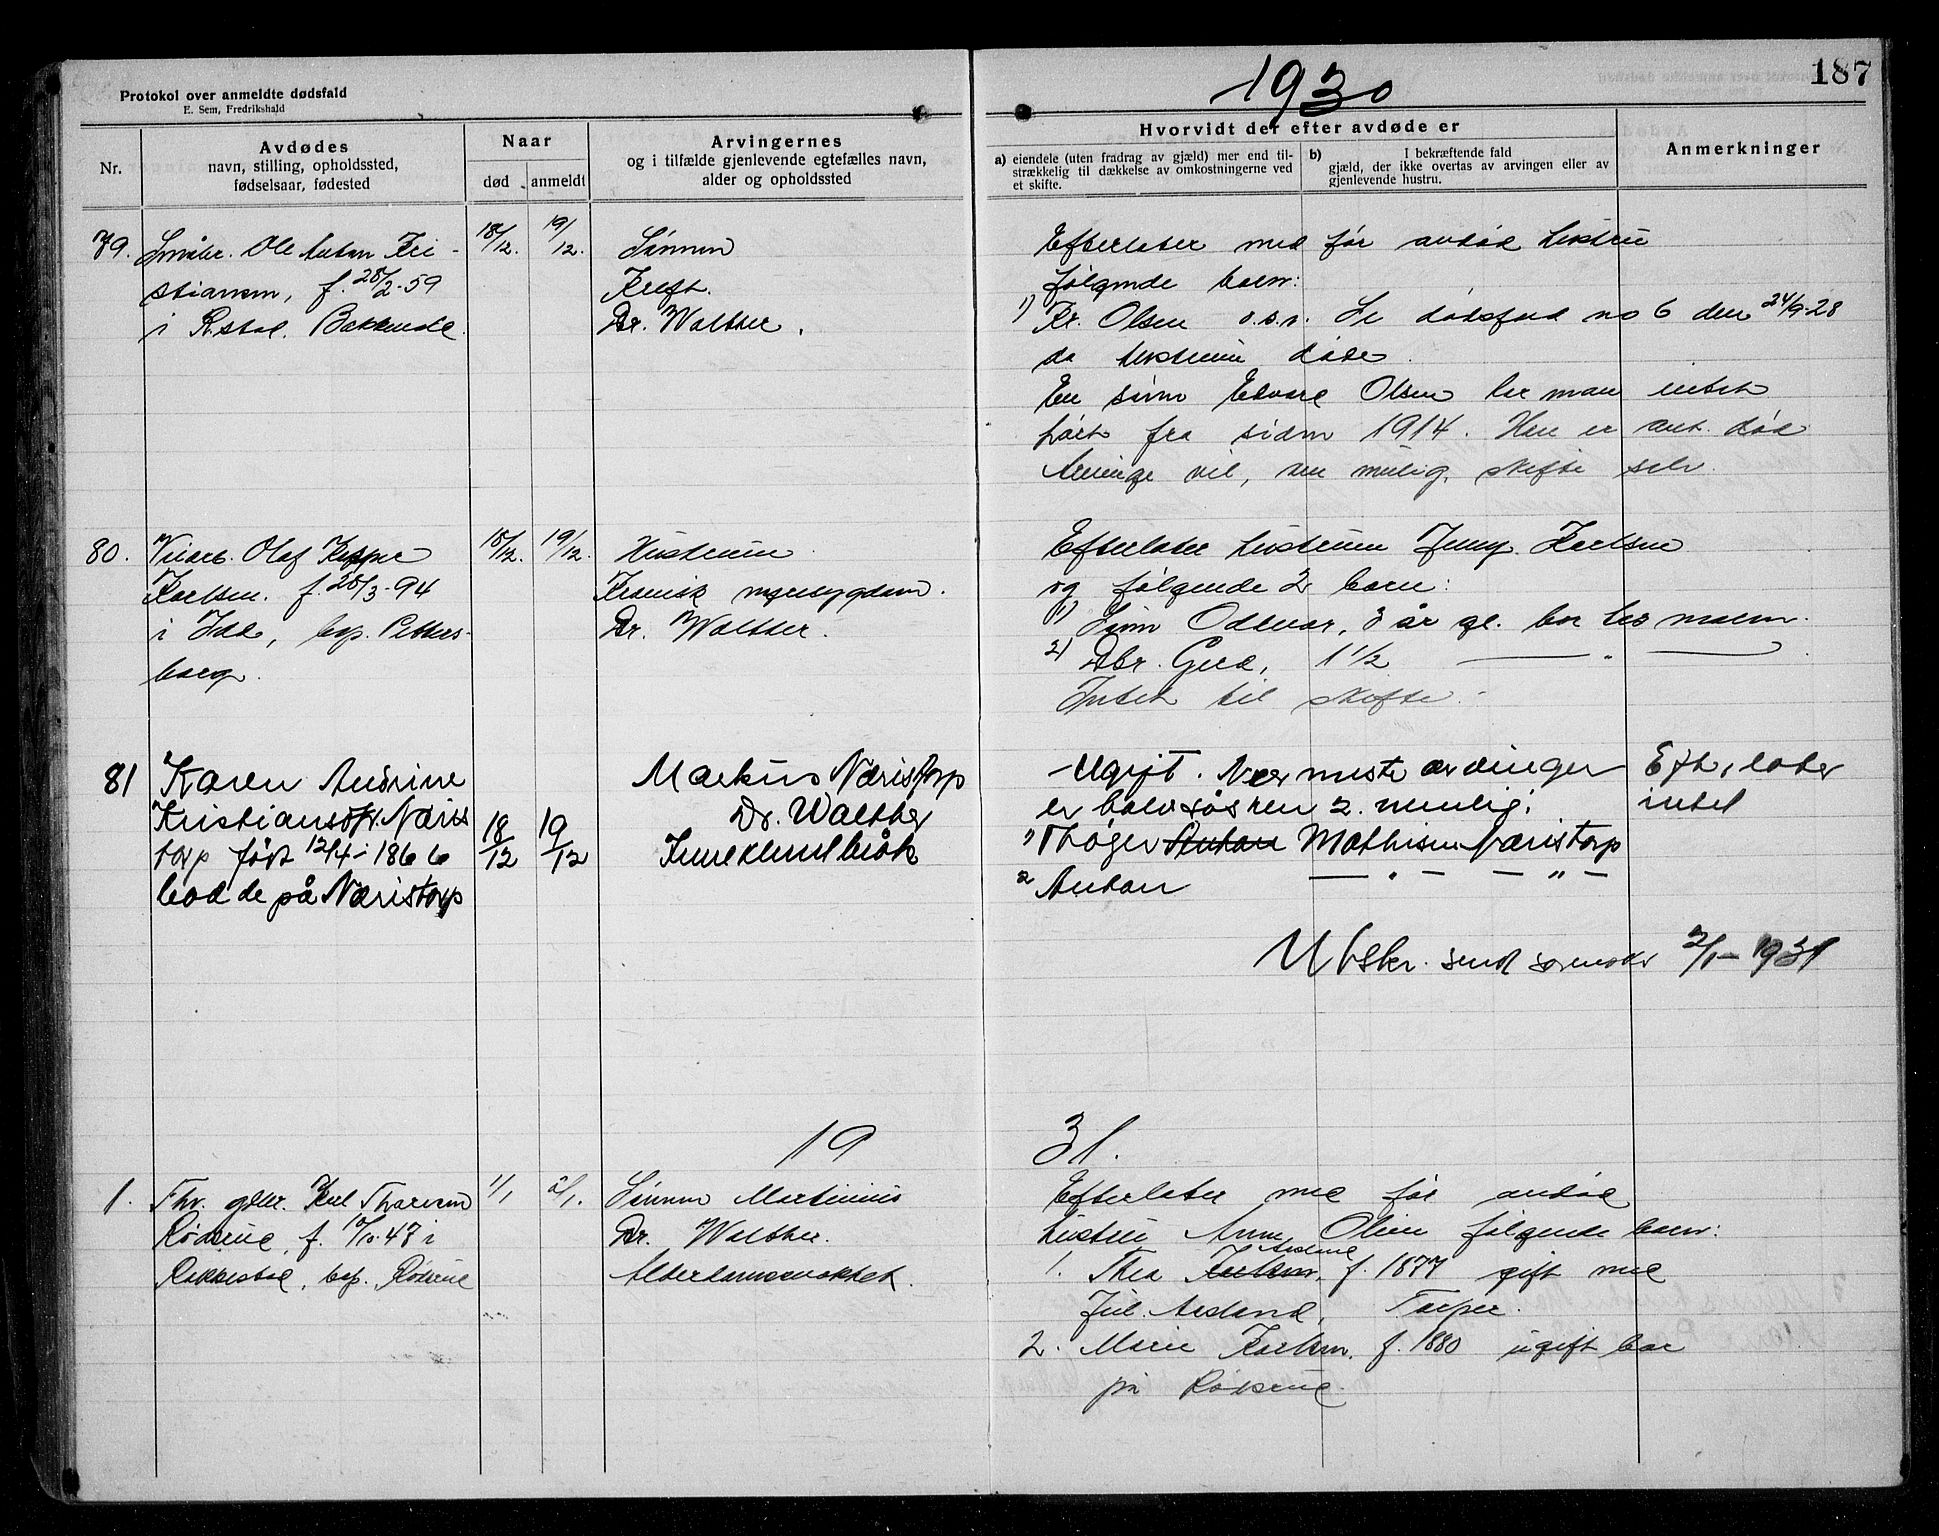 187
1930
Protokol over anmeldte dødsfald
E. Sem, Fredrikshald
Nr.
Avdødes
navn, stilling, opholdssted,
fødselsaar, fødested
Naar
død
anmeldt
Arvingernes
og i tilfælde gjenlevende egtefælles navn,
alder og opholdssted
Hvorvidt der efter avdøde er
a) eiendele (uten fradrag av gjæld) mer end til-
strækkelig til dækkelse av omkostningerne ved
et skifte.
b) I bekræftende fald
gjæld, der ikke overtas av arvingen eller av
gjenlevende hustru.
Anmerkninger
79. Småbr. Ole Anton Kri-
stiansen, f. 28/2-59
i R.stad. Bakkende
18/12. 19/12.
Sønnen
Kreft.
Dr. Walther.
Efterlater med før avdød hustru
følgende barn:
1) Kr. Olsen o.s.v. Se dødsfald no 6 den 24/9-28
da hustruen døde.
En sønn Edvard Olsen har man intet
hørt fra siden 1914. Han er ant. død
Arvinge vil, om mulig, skifte selv.
80. Olaf
Karlsen. f. 28/3-94
i Idd, bop. Petters-
borg.
18/12. 19/12.
Hustruen
Kronisk nyresygdom.
Dr. Walther.
Efterlater hustruen Jenny Karlsen
og følgende 2 barn:
1) Sønn Oddvar, 3 år gl. bor hos moren.
2) Dtr. Gerd, 1 1/2 — " —
Intet til skifte.
81 Karen Andrine
Kristiansdtr. Næris
torp født 12/4-1866
bodde på Næristorp
18/12 19/12
Markus Næristorp
Dr. Walther
Ugift. Nærmeste arvinger
er halvsøsken 2. nemlig:
1) Thøger Anton Mathisen Næristorp
2 Anton — " — — " —
Eft. later
intet
Utskr. send sorenskr 2/1-1931
19 31.
1. Fhv. gbr. Karl Thoresen
Rødsrud, f. 10/10.47 i
Rakkestad, bop. Rødsrud
1/1 2/1.
Sønnen Martinius
Dr. Walther.
Alderdomssvakhet.
Efterlater med før avdød
hustru Anne Oline følgende barn:
1. Thea Karlsen, f. 1877 gift med
Jul. Aasland, Torper.
2. Marie Karlsen, f. 1880 ugift bor
på Rødsrud.